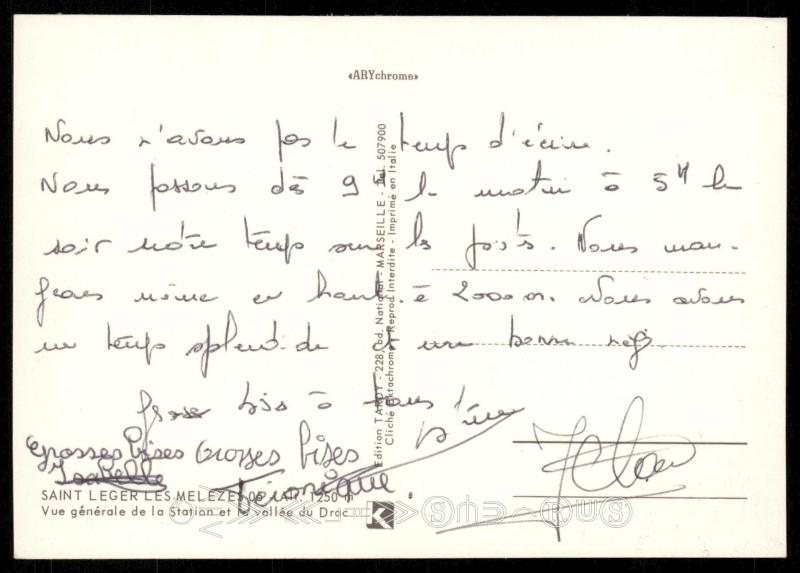 «ARYchrome»
Nous n'avons pas le temps d'écrire.
Nous passons dès 9H le matin à 5H le
soir notre temps sur les pistes. Nous man-
geons même en haut à 2000 m. Nous avons
un temps splendide et une bonne neige
Gros bis à tous !
Grosses bises Grosses bises
Isabelle
Véronique
SAINT LEGER LES MELEZES 05 (Alt. 1250 m
Vue générale de la Station et la vallée du Drac
Edition TARDY - 228, Bd. National - MARSEILLE - Tél. 507900
Cliché Ektachrome - Reprod Interdite - Imprimé en Italie